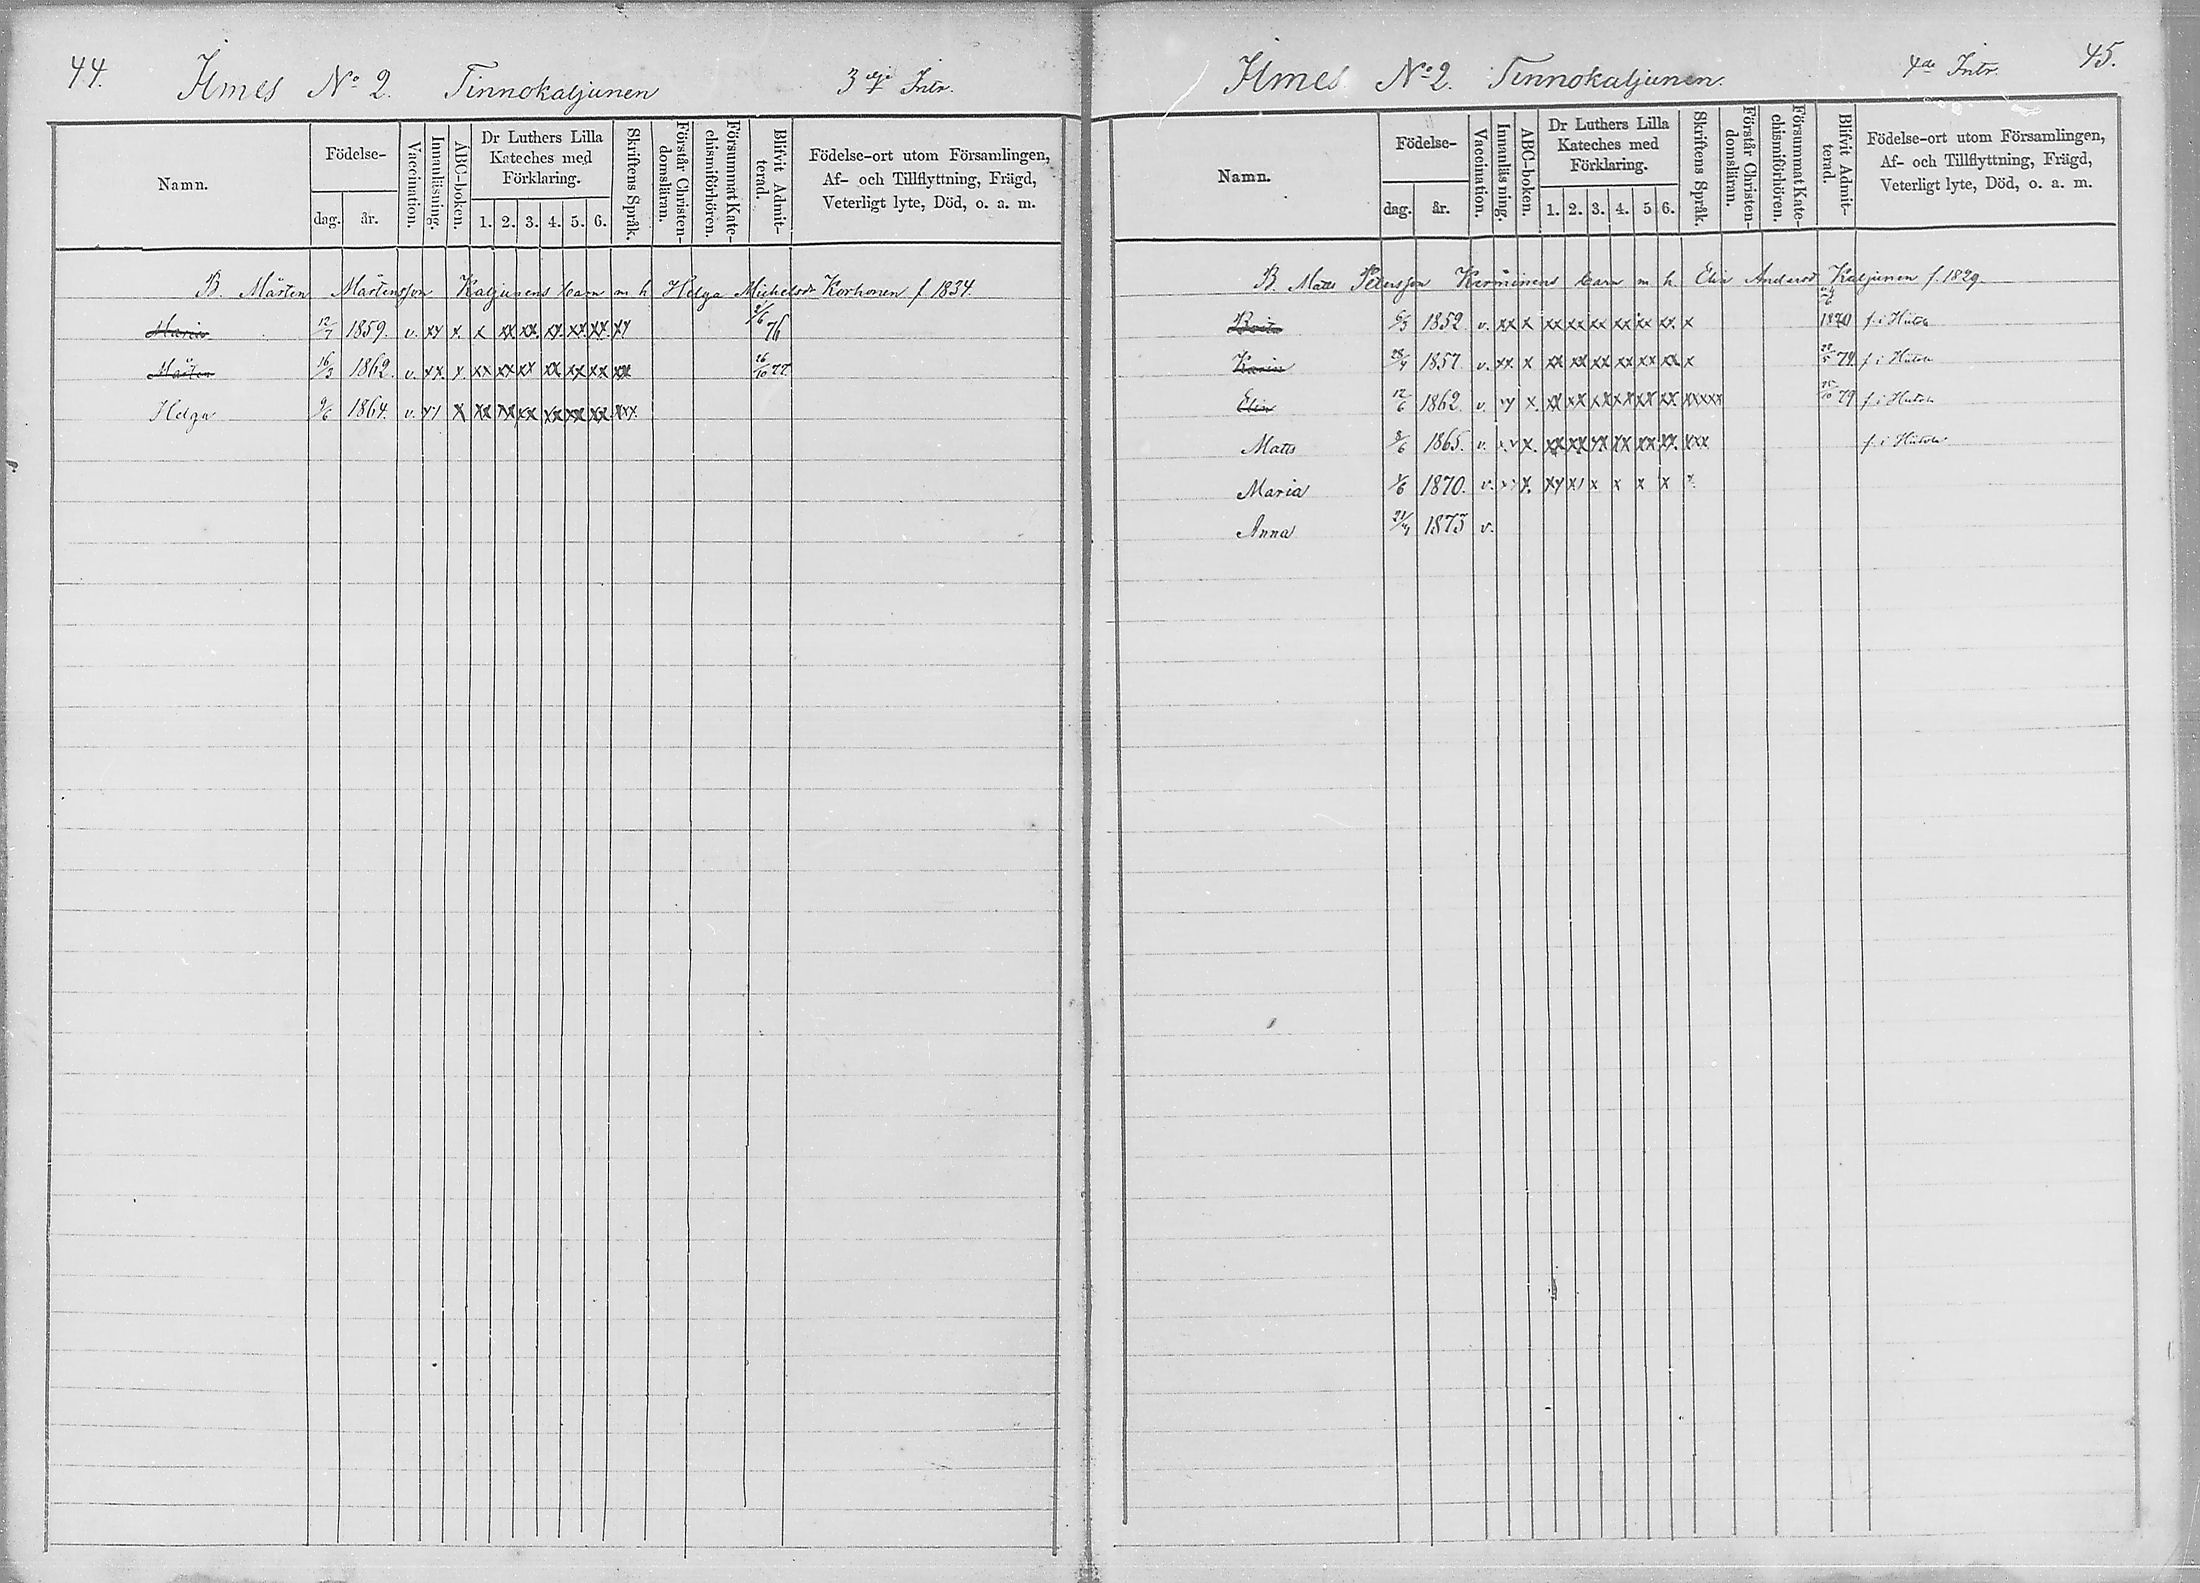 44. Ilmes No 2. Tinnokaljunen 3dje Intr.
Namn. Födelse- dag. år. Vaccination. Innanläsning. ABC-boken. Dr Luthers Lilla Kateches med Förklaring. 1. 2. 3. 4. 5. 6. Skriftens Språk. Förstår Christen-domsläran. Försummat Kate-chismiförhören. Blifvit Admit-terad. Födelse-ort utom Församlingen, Af- och Tillflyttning, Frägd, Veterligt lyte, Död, o. a. m.
B. Mårten Mårtensson Kaljunens barn m h Helga Michelsdr Korhonen f 1834.
Maria 12/7 1859. v. xx x. x xx xx. xx xx xx xx 76
Mårten 16/3 1862. v. xx. x. xx xx xx xx xx xx xx 26/10 77
Helga 9/6 1864. v. xx x xx xx xx xx xx xx. xxx
Ilmes No 2. Tinnokaljunen. 4de Intr. 45.
Namn. Födelse- dag. år. Vaccination. Innanläsning. ABC-boken. Dr Luthers Lilla Kateches med Förklaring. 1. 2. 3. 4. 5 6. Skriftens Språk. Förstår Christen-domsläran. Försummat Kate-chismiförhören. Blifvit Admit-terad. Födelse-ort utom Församlingen, Af- och Tillflyttning, Frägd, Veterligt lyte, Död, o. a. m.
B. Matts Petersson Kerminens barn m h. Elin Andersd Kaljunen f. 1829.
1852 v. xx x xx xx xx xx xx xx. x 1870 f. i Hiitola
Karin 28/4 1857. v. xx. x xx xx xx xx xx xx x 74. f. i Hiitola
Elin 12/6 1862. v. xx x. xx xx xx xx xx xx. xxxxx 79 f. i Hiitola
Matts 1865. v. xx x. xx xx xx xx xx xx. xxx f. i Hiitola
Maria 1870. v. xx x. xx xx x x x x x
Anna 1875 v.